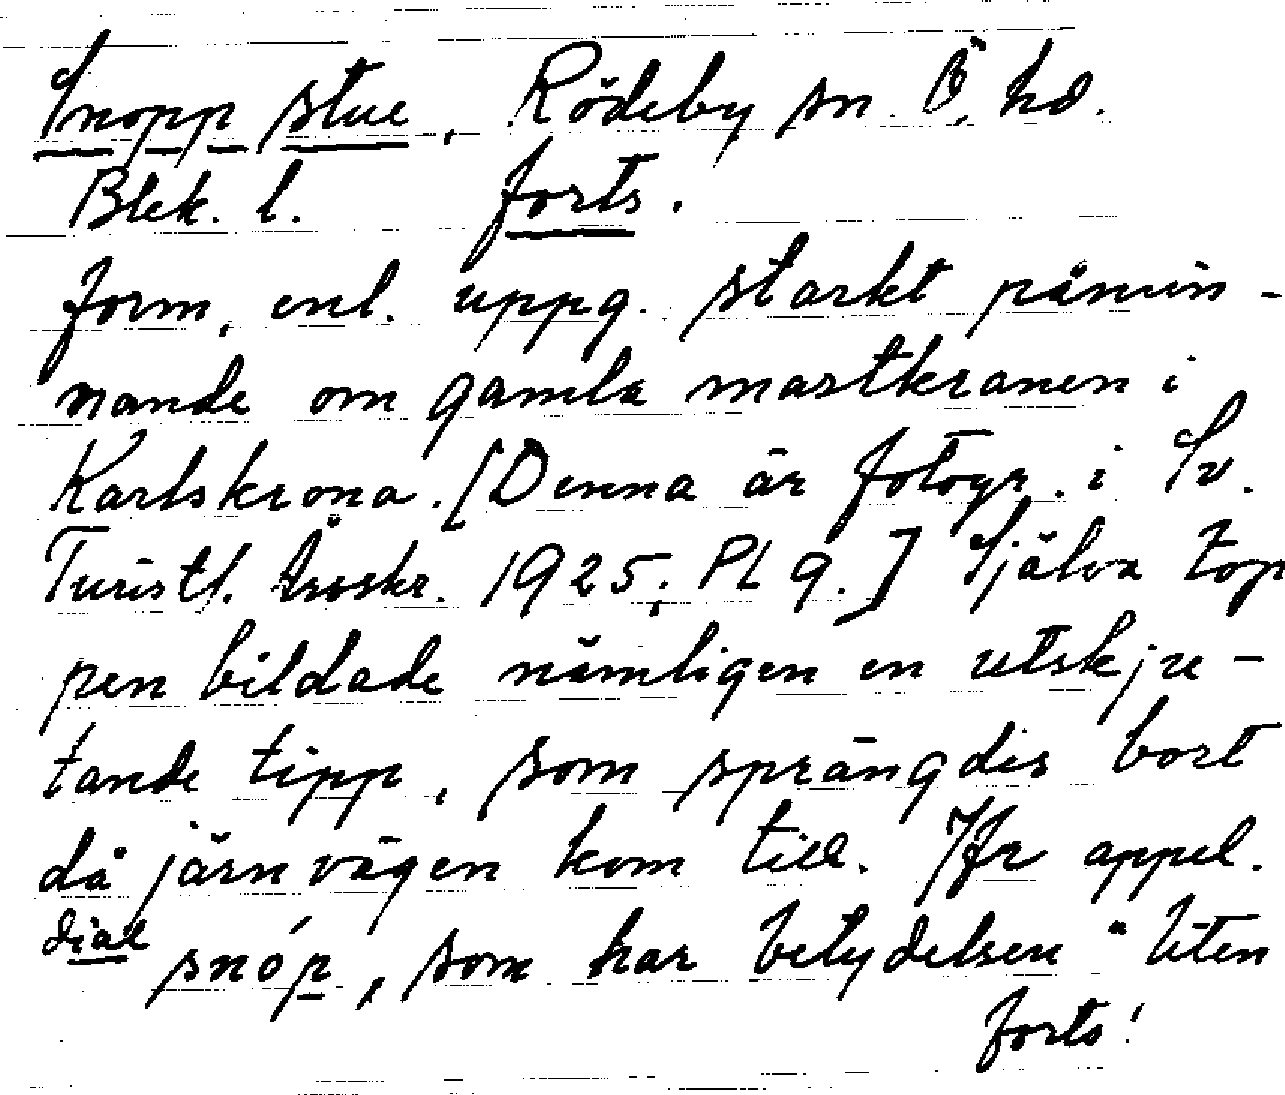 Snopp stue, Rödeby sn. Ö. hd.
Blek. l. forts.
form, enl. uppg. starkt påmin-
nande om gamla mastkranen i
Karlskrona. [Denna är fotogr. i Sv.
Turistf. årsskr. 1925; Pl 9.] Själva top
pen bildade nämligen en utskju-
tande tipp, som sprängdes bort
då järnvägen kom till. Jfr appel.
dial snóp, som har betydelsen "liten
forts!